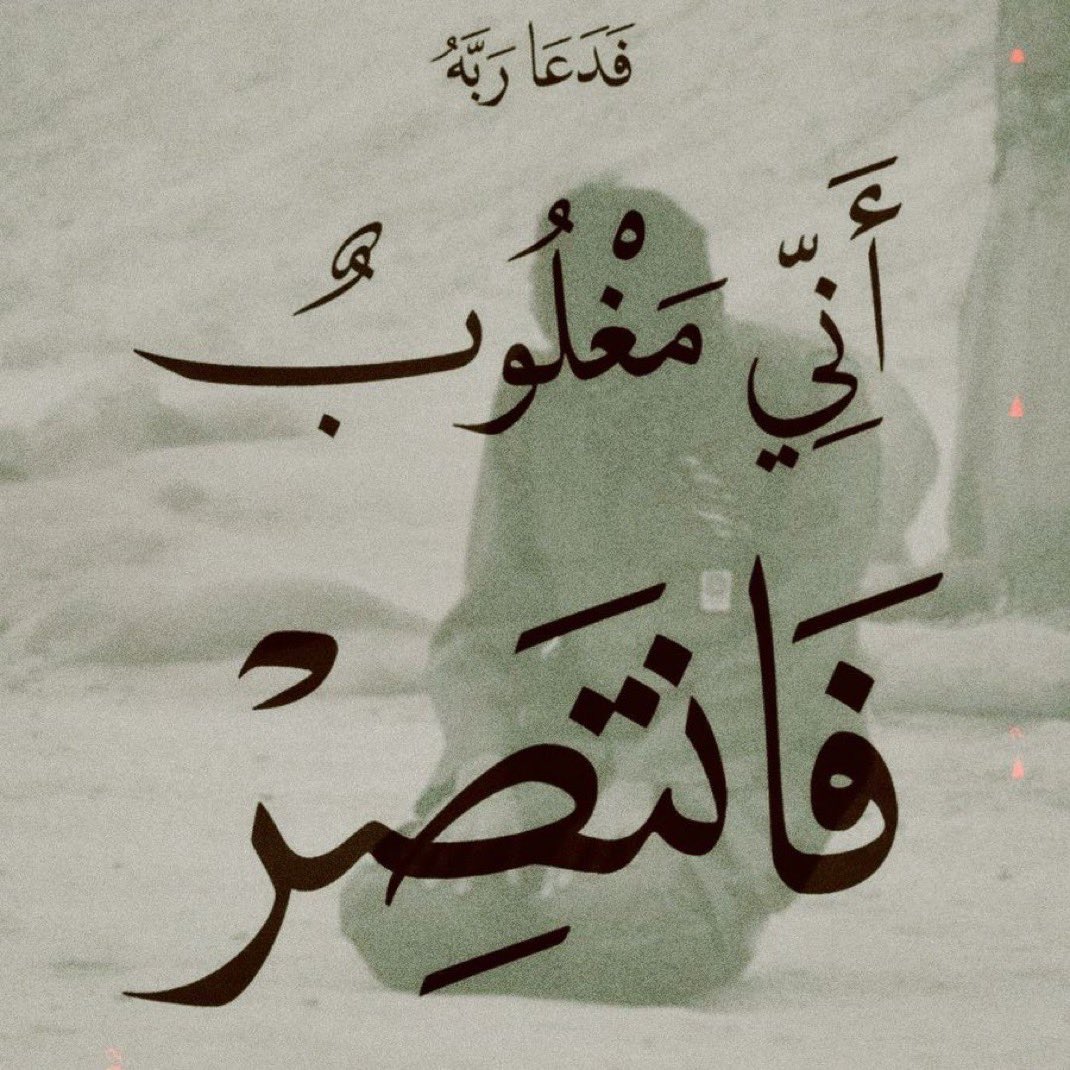 فَدَعَا رَبَّهُ
أَنِّي مَغْلُوبٌ
فَانتَصِرْ